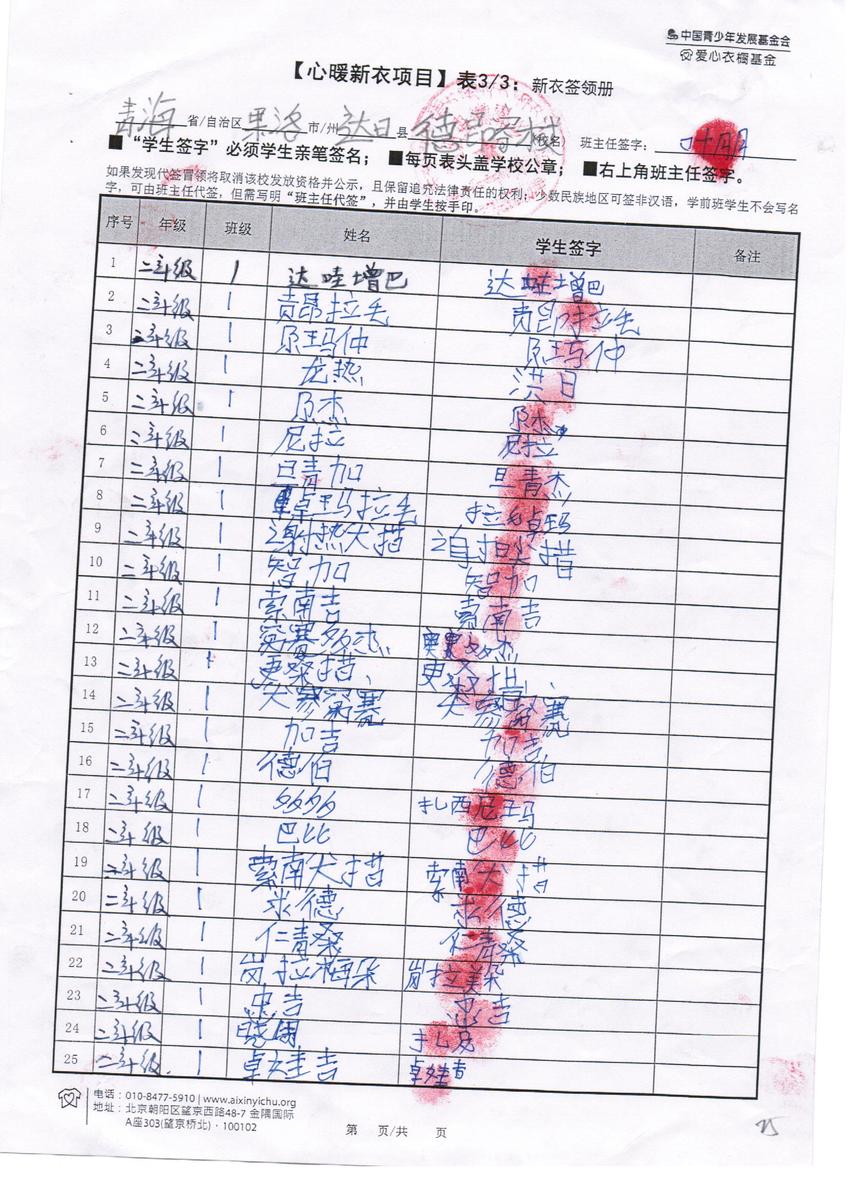 中国青少年发展基金会
爱心衣橱基金
【心暖新衣项目】表3/3：新衣签领册
青海 省/自治区 果洛 市/州 达日 县 德昂 (校名) 班主任签字：
■ “学生签字”必须学生亲笔签名； ■每页表头盖学校公章； ■右上角班主任签字。
如果发现代签冒领将取消该校发放资格并公示，且保留追究法律责任的权利；少数民族地区可签非汉语，学前班学生不会写名
字，可由班主任代签，但需写明“班主任代签”，并由学生按手印。
序号 年级 班级 姓名 学生签字 备注
1 二年级 1 达哇增巴 达哇增巴
2 二年级 1 贡昂拉毛 贡昂拉毛
3 二年级 1 尕玛仲 尕玛仲
4 二年级 1 龙热 洪日
5 二年级 1 尕杰 尕杰
6 二年级 1 尼拉 尼拉
7 二年级 1 旦青加 旦青杰
8 二年级 1 卓玛拉毛 拉毛卓玛
9 二年级 1 谢热犬措 措
10 二年级 1 智加 智加
11 二年级 1 索南吉 索南吉
12 二年级 1
13 二年级 1 更桑措 更
14 二年级 1
15 二年级 1 加吉 加吉
16 二年级 1 德伯 德伯
17 二年级 1 扎西尼玛
18 二年级 1 巴
19 二年级 1 索南犬措 索南犬措
20 二年级 1 求德 求德
21 二年级 1 仁青桑 仁青桑
22 二年级 1 岗拉梅朵 岗拉美朵
23 二年级 1 忠吉 忠吉
24 二年级 1
25 二年级 1 卓娃吉 卓娃吉
电话：010-8477-5910 | www.aixinyichu.org
地址：北京朝阳区望京西路48-7 金隅国际
A座303(望京桥北)·100102
第 页/共 页
25